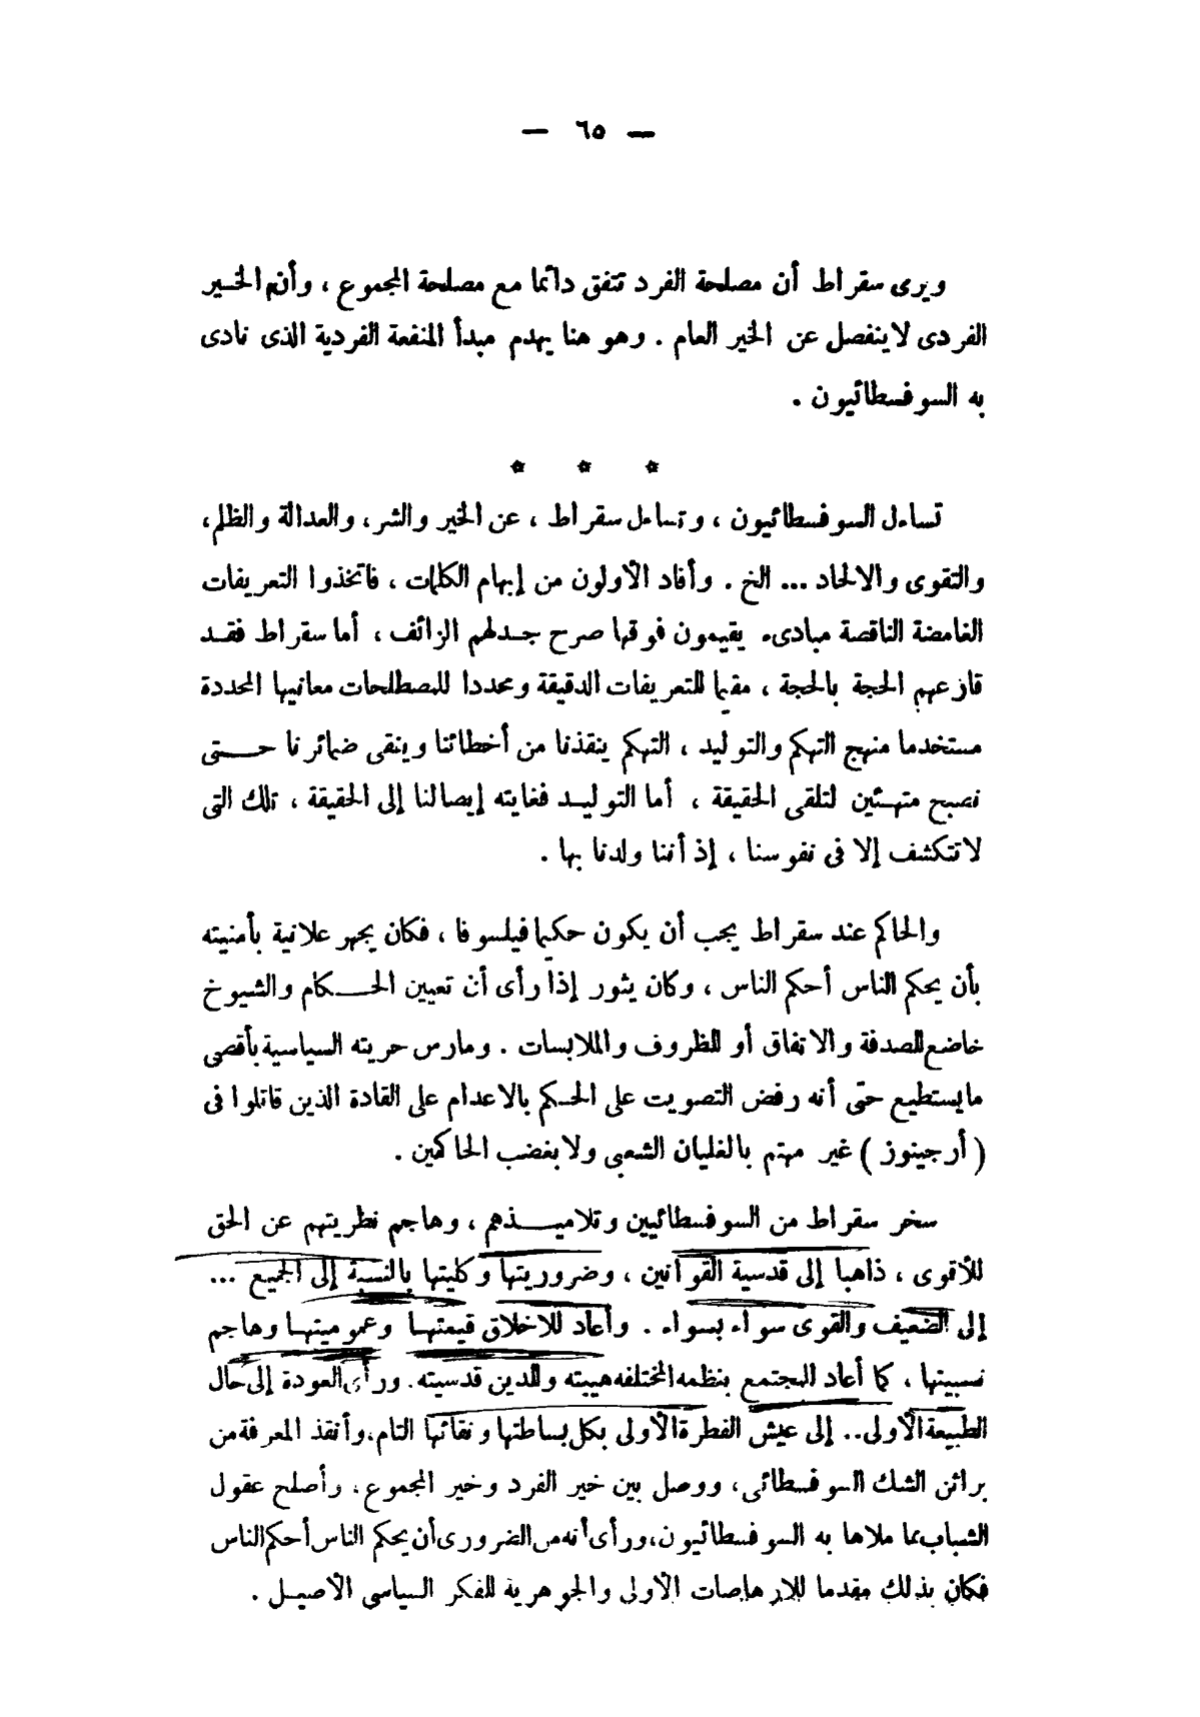 — ٦٥ —
ويرى سقراط أن مصلحة الفرد تتفق دائما مع مصلحة المجموع ، وأن الخير
الفردى لا ينفصل عن الخير العام . وهو هنا يهدم مبدأ المنفعة الفردية الذى نادى
به السوفسطائيون .
* * *
تساءل السوفسطائيون ، وتساءل سقراط ، عن الخير والشر، والعدالة والظلم،
والتقوى والالحاد ... الخ . وأفاد الأولون من إبهام الكلمات ، فاتخذوا التعريفات
الغامضة الناقصة مبادىء يقيمون فوقها صرح جدلهم الزائف ، أما سقراط فقد
قازعهم الحجة بالحجة ، مقيما للتعريفات الدقيقة ومحددا للمصطلحات معانيها المحددة
مستخدما منهج التهكم والتوليد ، التهكم ينقذنا من أخطائنا وينقى ضمائرنا حتى
نصبح متهيئين لتلقى الحقيقة ، أما التوليد فغايته إيصالنا إلى الحقيقة ، تلك التى
لا تتكشف إلا فى نفوسنا ، إذ أننا ولدنا بها .
والحاكم عند سقراط يجب أن يكون حكيما فيلسوفا ، فكان يجهر علانية بأمنيته
بأن يحكم الناس أحكم الناس ، وكان يثور إذا رأى أن تعيين الحكام والشيوخ
خاضع للصدفة والاتفاق أو للظروف والملابسات . ومارس حريته السياسية بأقصى
ما يستطيع حتى أنه رفض التصويت على الحكم بالاعدام على القادة الذين قاتلوا فى
( أرجينوز ) غير مهتم بالغليان الشعبى ولا بغضب الحاكمين .
سخر سقراط من السوفسطائيين وتلاميذهم ، وهاجم نظريتهم عن الحق
للأقوى ، ذاهبا إلى قدسية القوانين ، وضروريتها وكليتها بالنسبة إلى الجميع ...
إلى الضعيف والقوى سواء بسواء . وأعاد للاخلاق قيمتها وعموميتها وهاجم
نسبيتها ، كما أعاد للمجتمع بنظمه المختلفه هيبته وللدين قدسيته. ورأى العودة إلى حال
الطبيعة الأولى.. إلى عيش الفطرة الأولى بكل بساطتها ونقائها التام، وأنقذ المعرفة من
براثن الشك السوفسطائى، ووصل بين خير الفرد وخير المجموع، وأصلح عقول
الشباب بما ملاها به السوفسطائيون، ورأى أنه من الضرورى أن يحكم الناس أحكم الناس
فكان بذلك مقدما للارهاصات الأولى والجوهرية للفكر السياسى الأصيل .